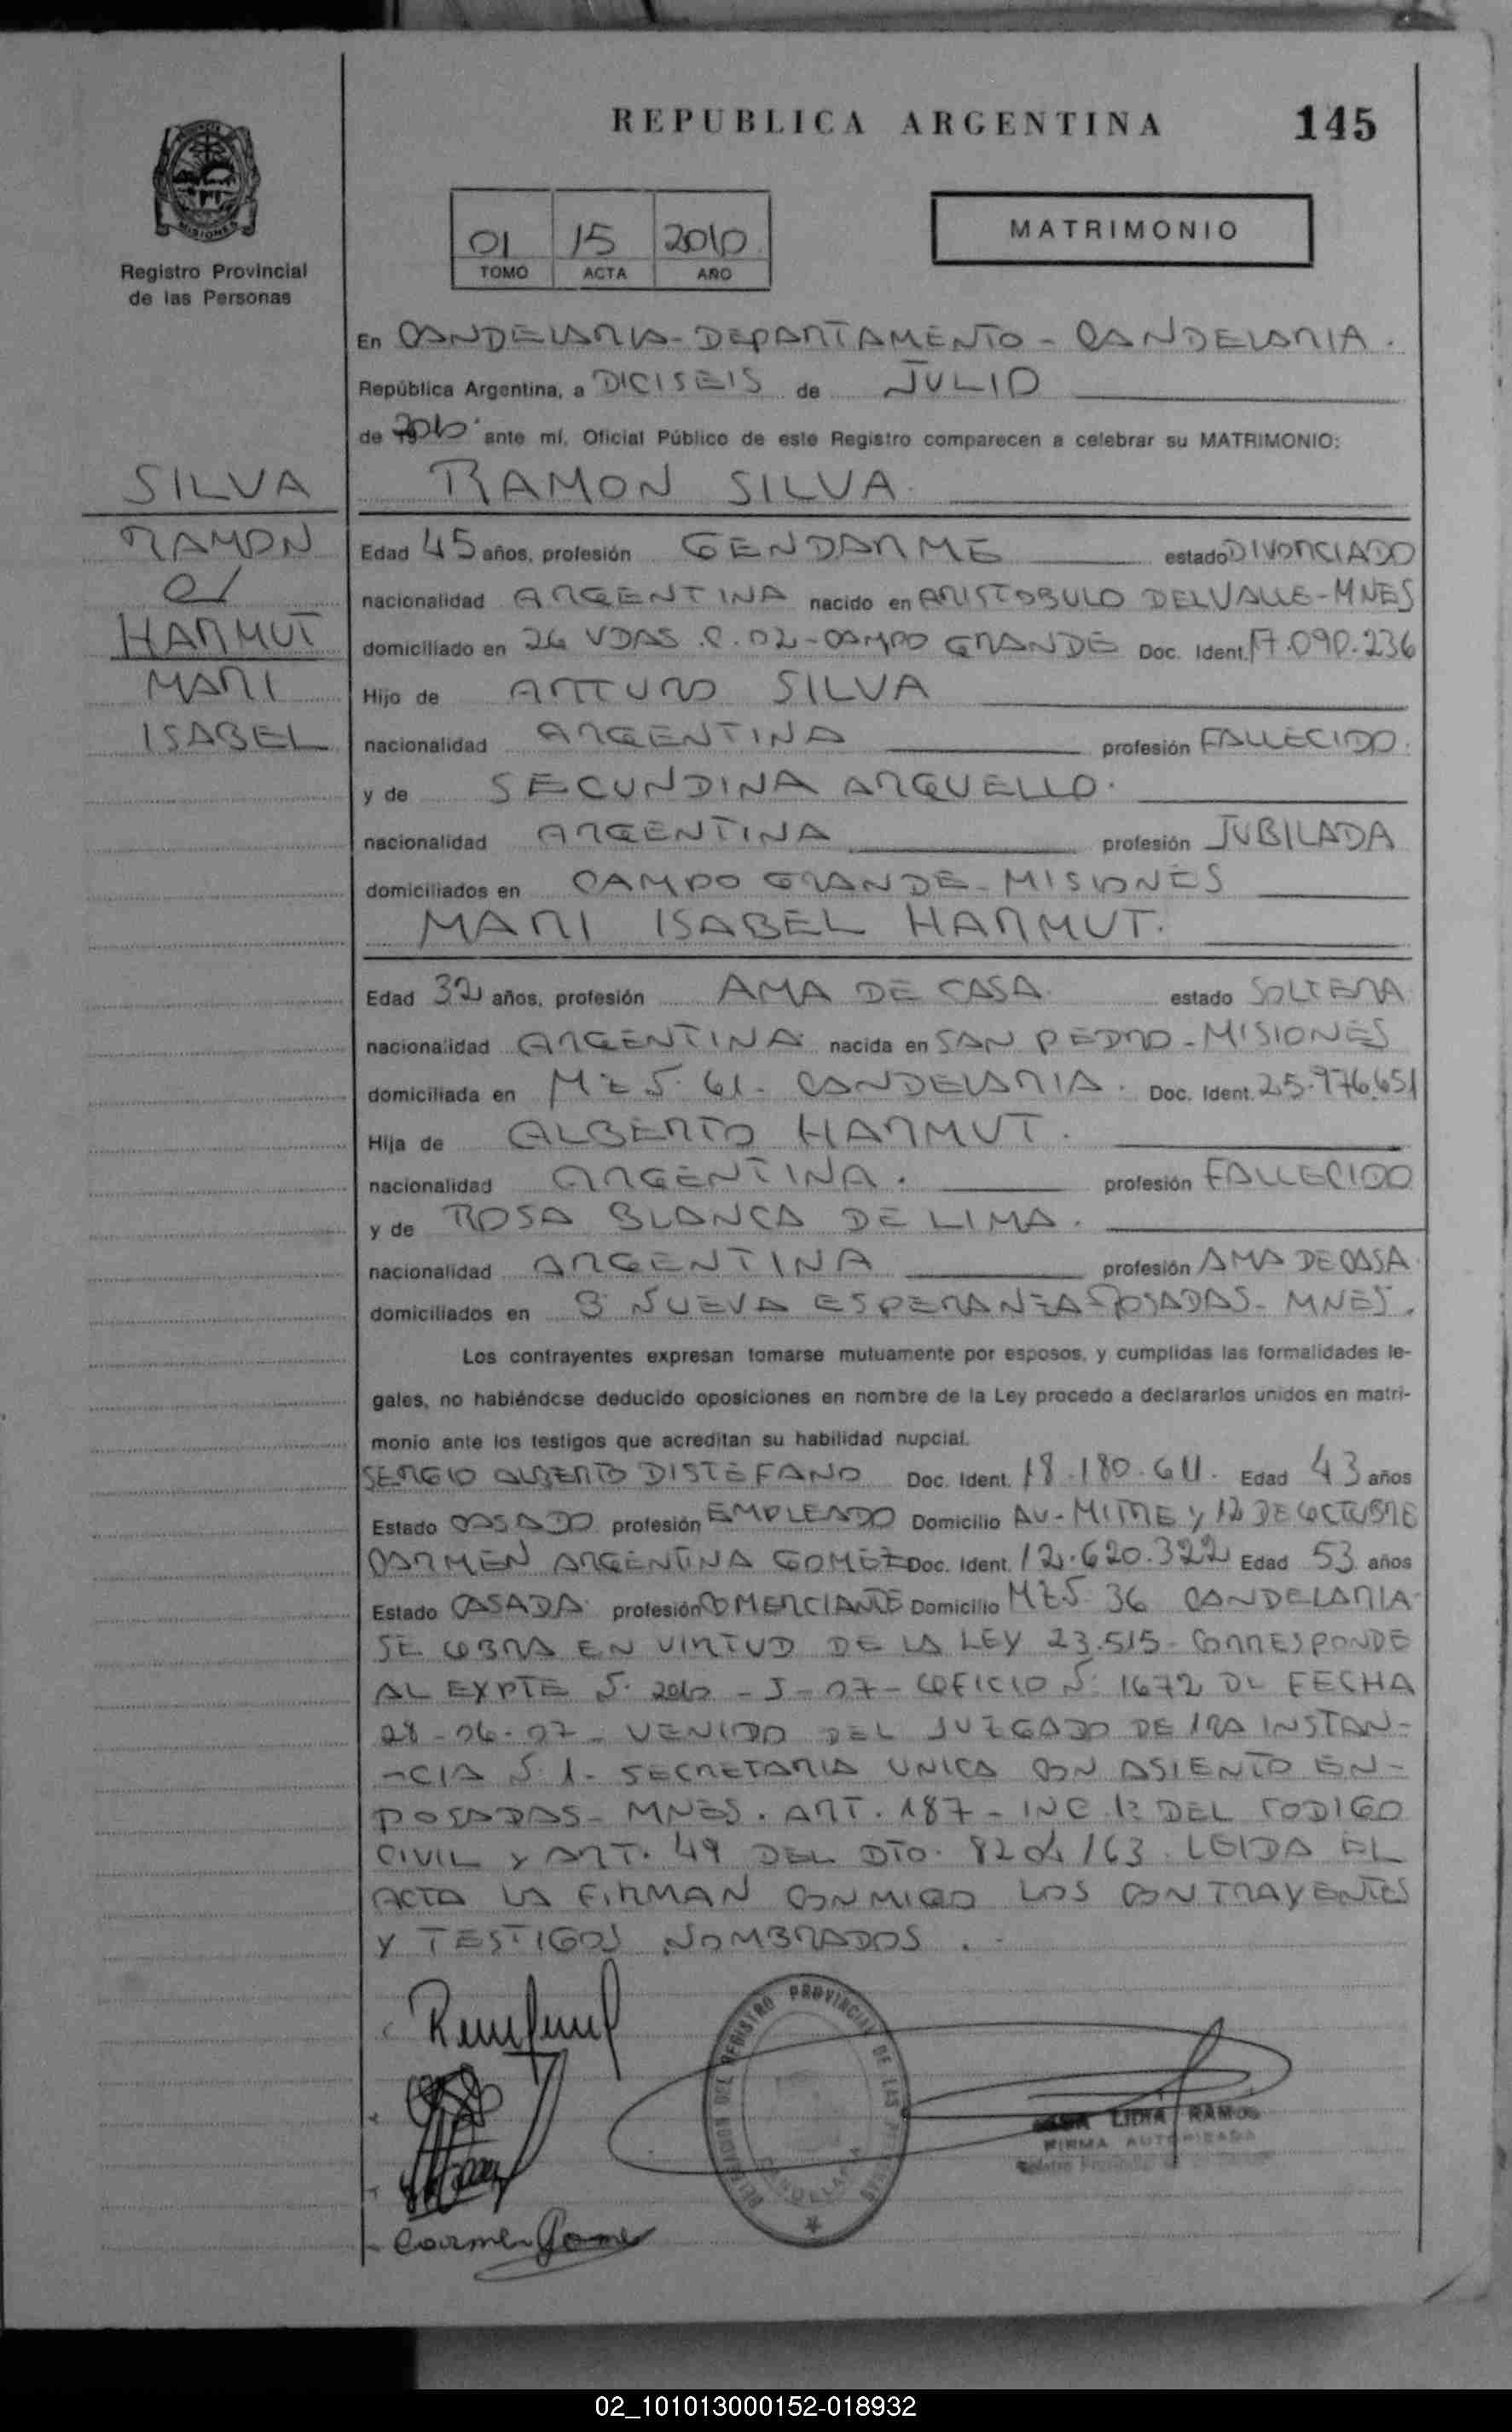 REPUBLICA ARGENTINA 145
MISIONES
Registro Provincial
de las Personas
01 15 2010
TOMO ACTA AÑO
MATRIMONIO
En CANDELARIA-DEPARTAMENTO-CANDELARIA.
República Argentina, a DICISEIS de JULIO
de 2010 ante mí, Oficial Público de este Registro comparecen a celebrar su MATRIMONIO:
SILVA
RAMON
c/
HARMUT
MARI
ISABEL
RAMON SILVA.
Edad 45 años, profesión GENDARME estado DIVORCIADO
nacionalidad ARGENTINA nacido en ARISTOBULO DEL VALLE-MNES
domiciliado en 26 VDAS. C. 02-CAMPO GRANDE Doc. Ident. 17.090.236
Hijo de ARTURO SILVA
nacionalidad ARGENTINA profesión FALLECIDO.
y de SECUNDINA ARGUELLO.
nacionalidad ARGENTINA profesión JUBILADA
domiciliados en CAMPO GRANDE-MISIONES
MARI ISABEL HARMUT.
Edad 32 años, profesión AMA DE CASA. estado SOLTERA
nacionalidad ARGENTINA nacida en SAN PEDRO-MISIONES
domiciliada en 61-CANDELARIA. Doc. Ident. 25.976.651
Hija de ALBERTO HARMUT.
nacionalidad ARGENTINA. profesión FALLECIDO
y de ROSA BLANCA DE LIMA.
nacionalidad ARGENTINA profesión AMA DE CASA.
domiciliados en B° NUEVA ESPERANZA-POSADAS-MNES.
Los contrayentes expresan tomarse mutuamente por esposos, y cumplidas las formalidades le-
gales, no habiéndose deducido oposiciones en nombre de la Ley procedo a declararlos unidos en matri-
monio ante los testigos que acreditan su habilidad nupcial.
SERGIO ALBERTO DISTEFANO Doc. Ident. 18.180.611. Edad 43 años
Estado CASADO profesión EMPLEADO Domicilio AV-MITRE y 12 DE OCTUBRE
CARMEN ARGENTINA GOMEZ Doc. Ident. 12.620.322 Edad 53 años
Estado CASADA profesión COMERCIANTE Domicilio 36 CANDELARIA
SE OBRA EN VIRTUD DE LA LEY 23.515-CORRESPONDE
AL EXPTE 2010 - 07-OFICIO N° 1672 DE FECHA
28-06-07-VENIDO DEL JUZGADO DE 1RA INSTAN-
-CIA N° 1-SECRETARIA UNICA CON ASIENTO EN-
POSADAS-MNES. ART. 187-INC. DEL CODIGO
CIVIL y ART. 49 DEL DTO. 8204/63. LEIDA EL
ACTA LA FIRMAN CONMIGO LOS CONTRAYENTES
Y TESTIGOS NOMBRADOS.
DELEGACION DEL REGISTRO PROVINCIAL DE LAS PERSONAS
CANDELARIA
LIDIA RAMOS
FIRMA AUTORIZADA
Carmen Gomez
02_101013000152-018932